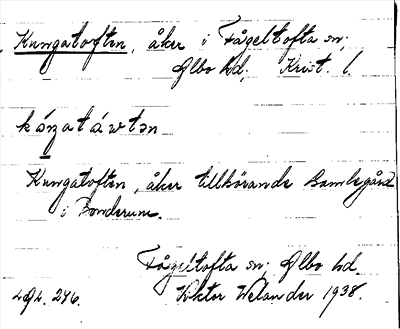 Kungatoften, åker i Fågeltofta sn;
Albo hd; Krist. l.
kóŋatáwtən
Kungatoften, åker tillhörande Bamlegård
i Bonderum.
Fågeltofta sn; Albo hd.
Viktor Welander 1938.